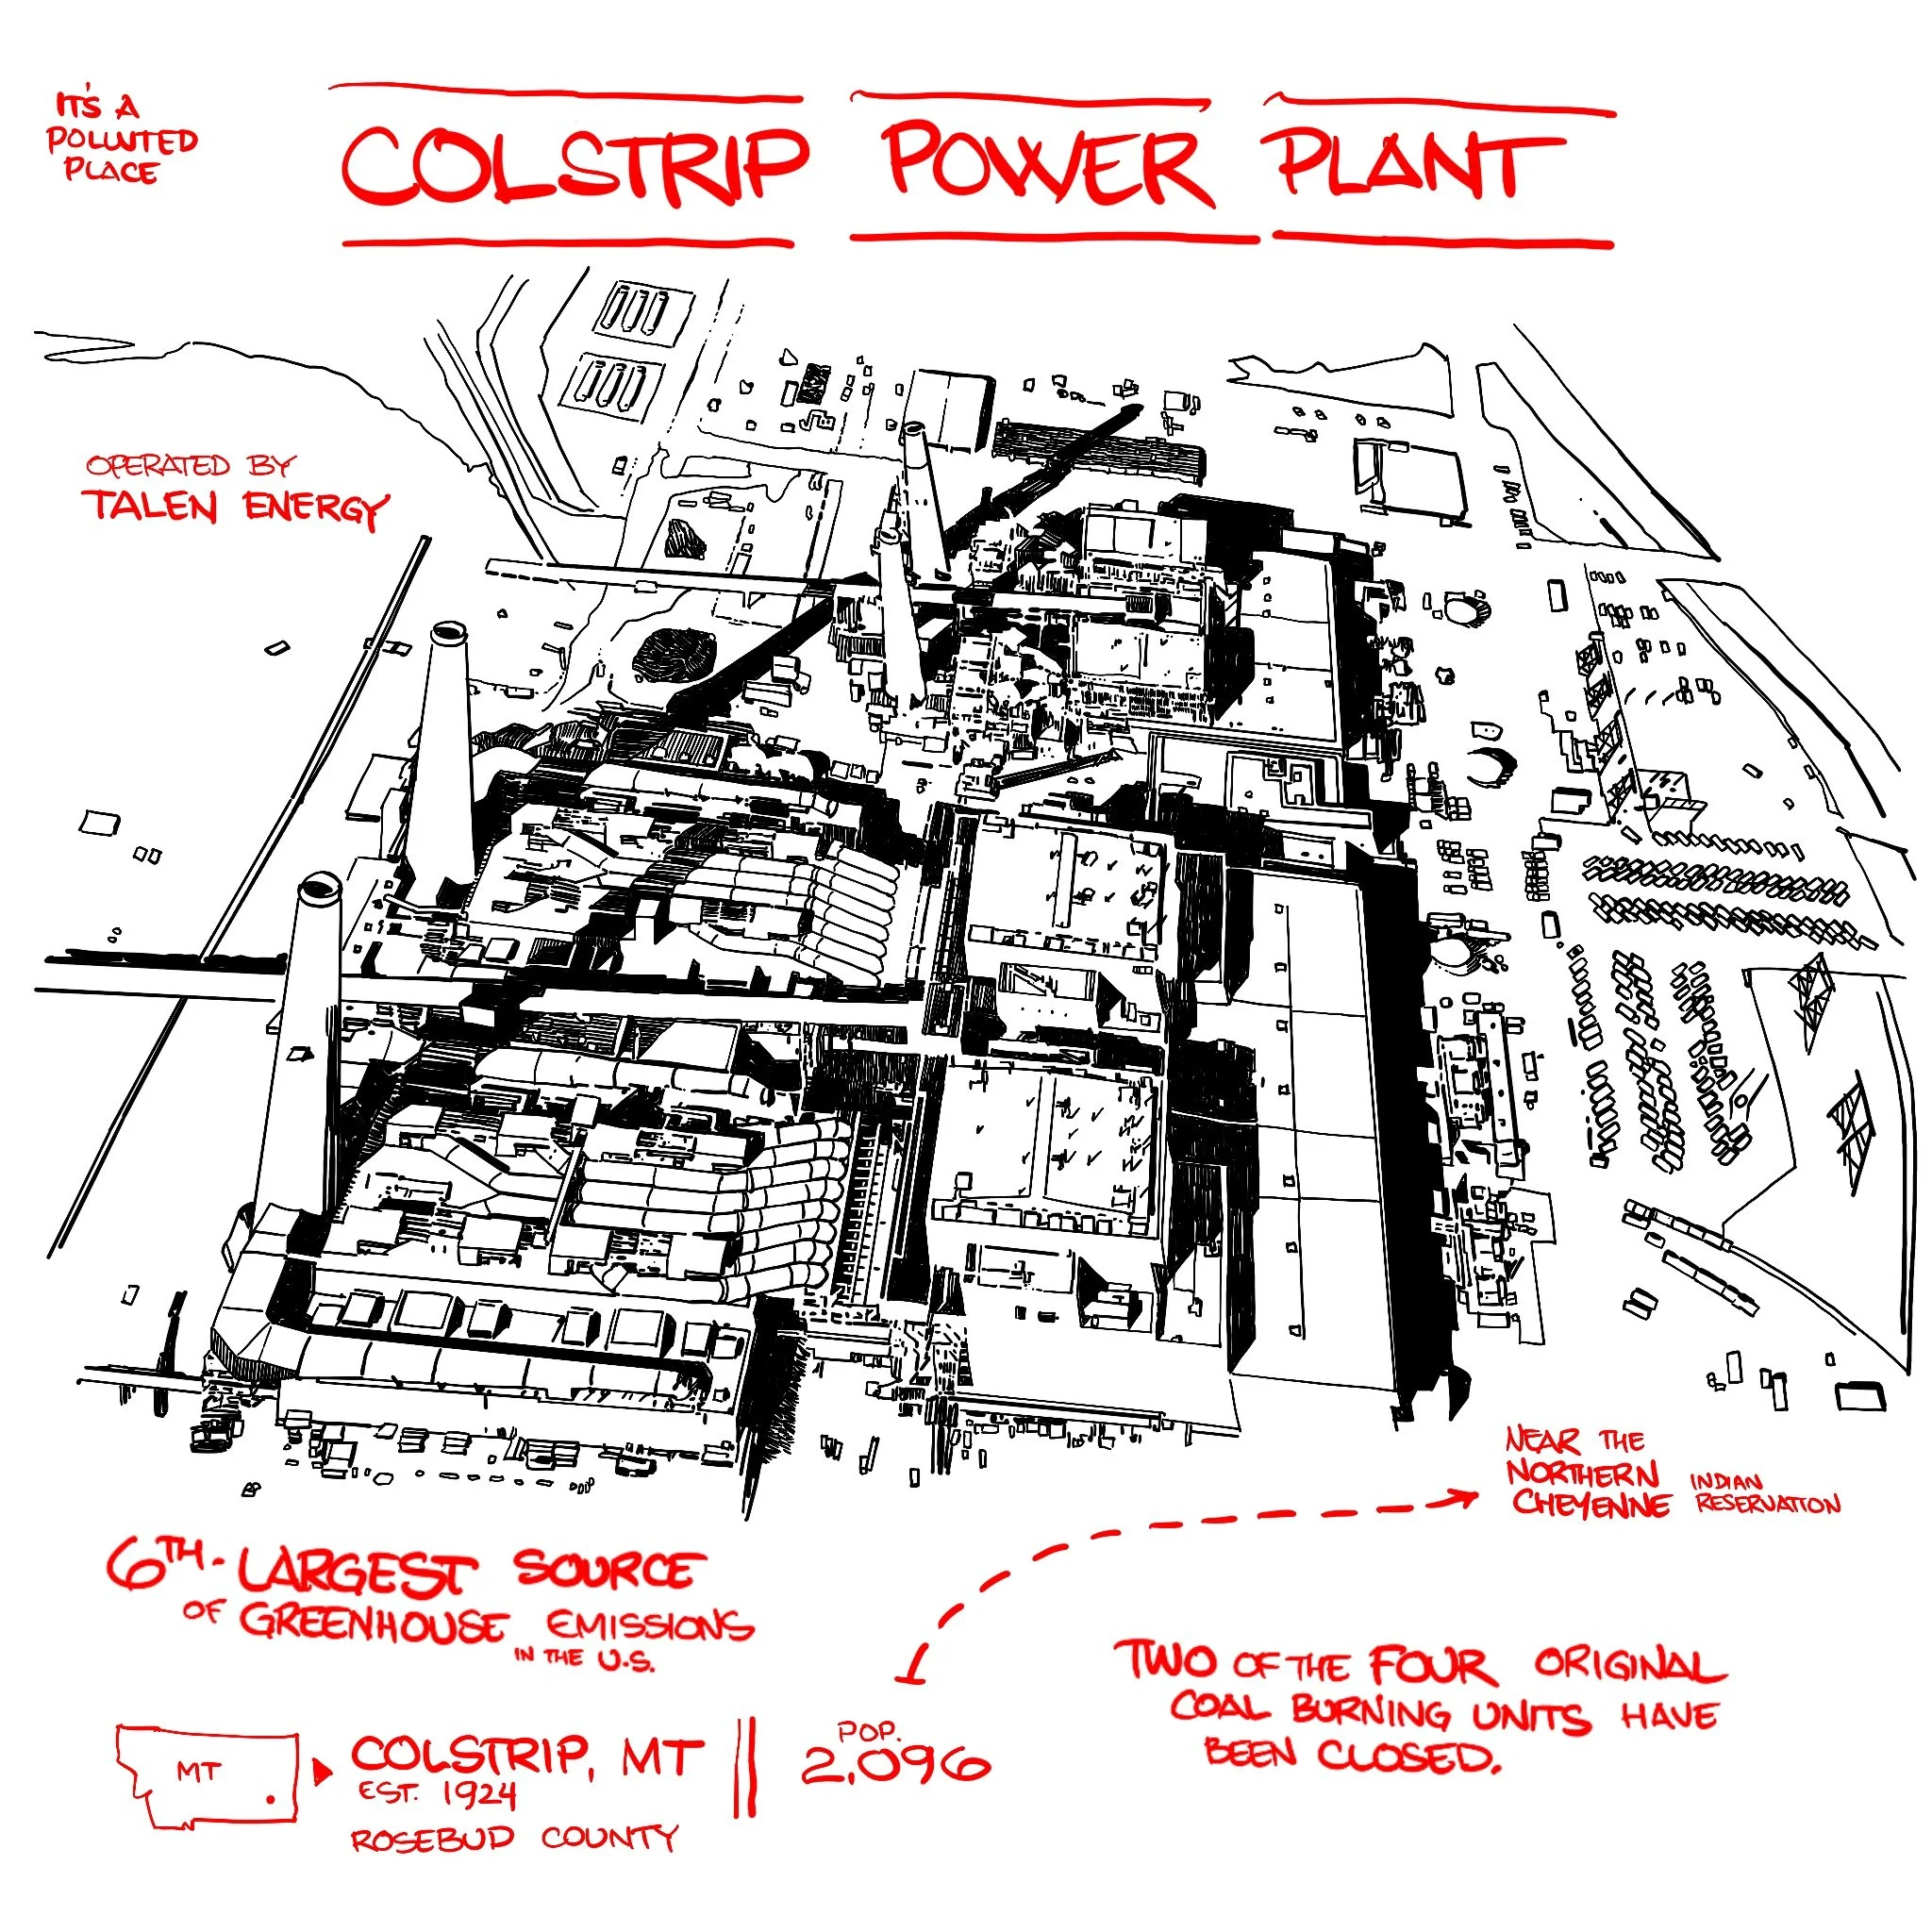 IT'S A
POLLUTED
PLACE
COLSTRIP POWER PLANT
OPERATED BY
TALEN ENERGY
NEAR THE
NORTHERN
CHEYENNE
INDIAN
RESERVATION
6TH-LARGEST SOURCE
OF GREENHOUSE EMISSIONS
IN THE U.S.
TWO OF THE FOUR ORIGINAL
COAL BURNING UNITS HAVE
BEEN CLOSED.
MT
COLSTRIP, MT
EST. 1924
ROSEBUD COUNTY
POP.
2,096